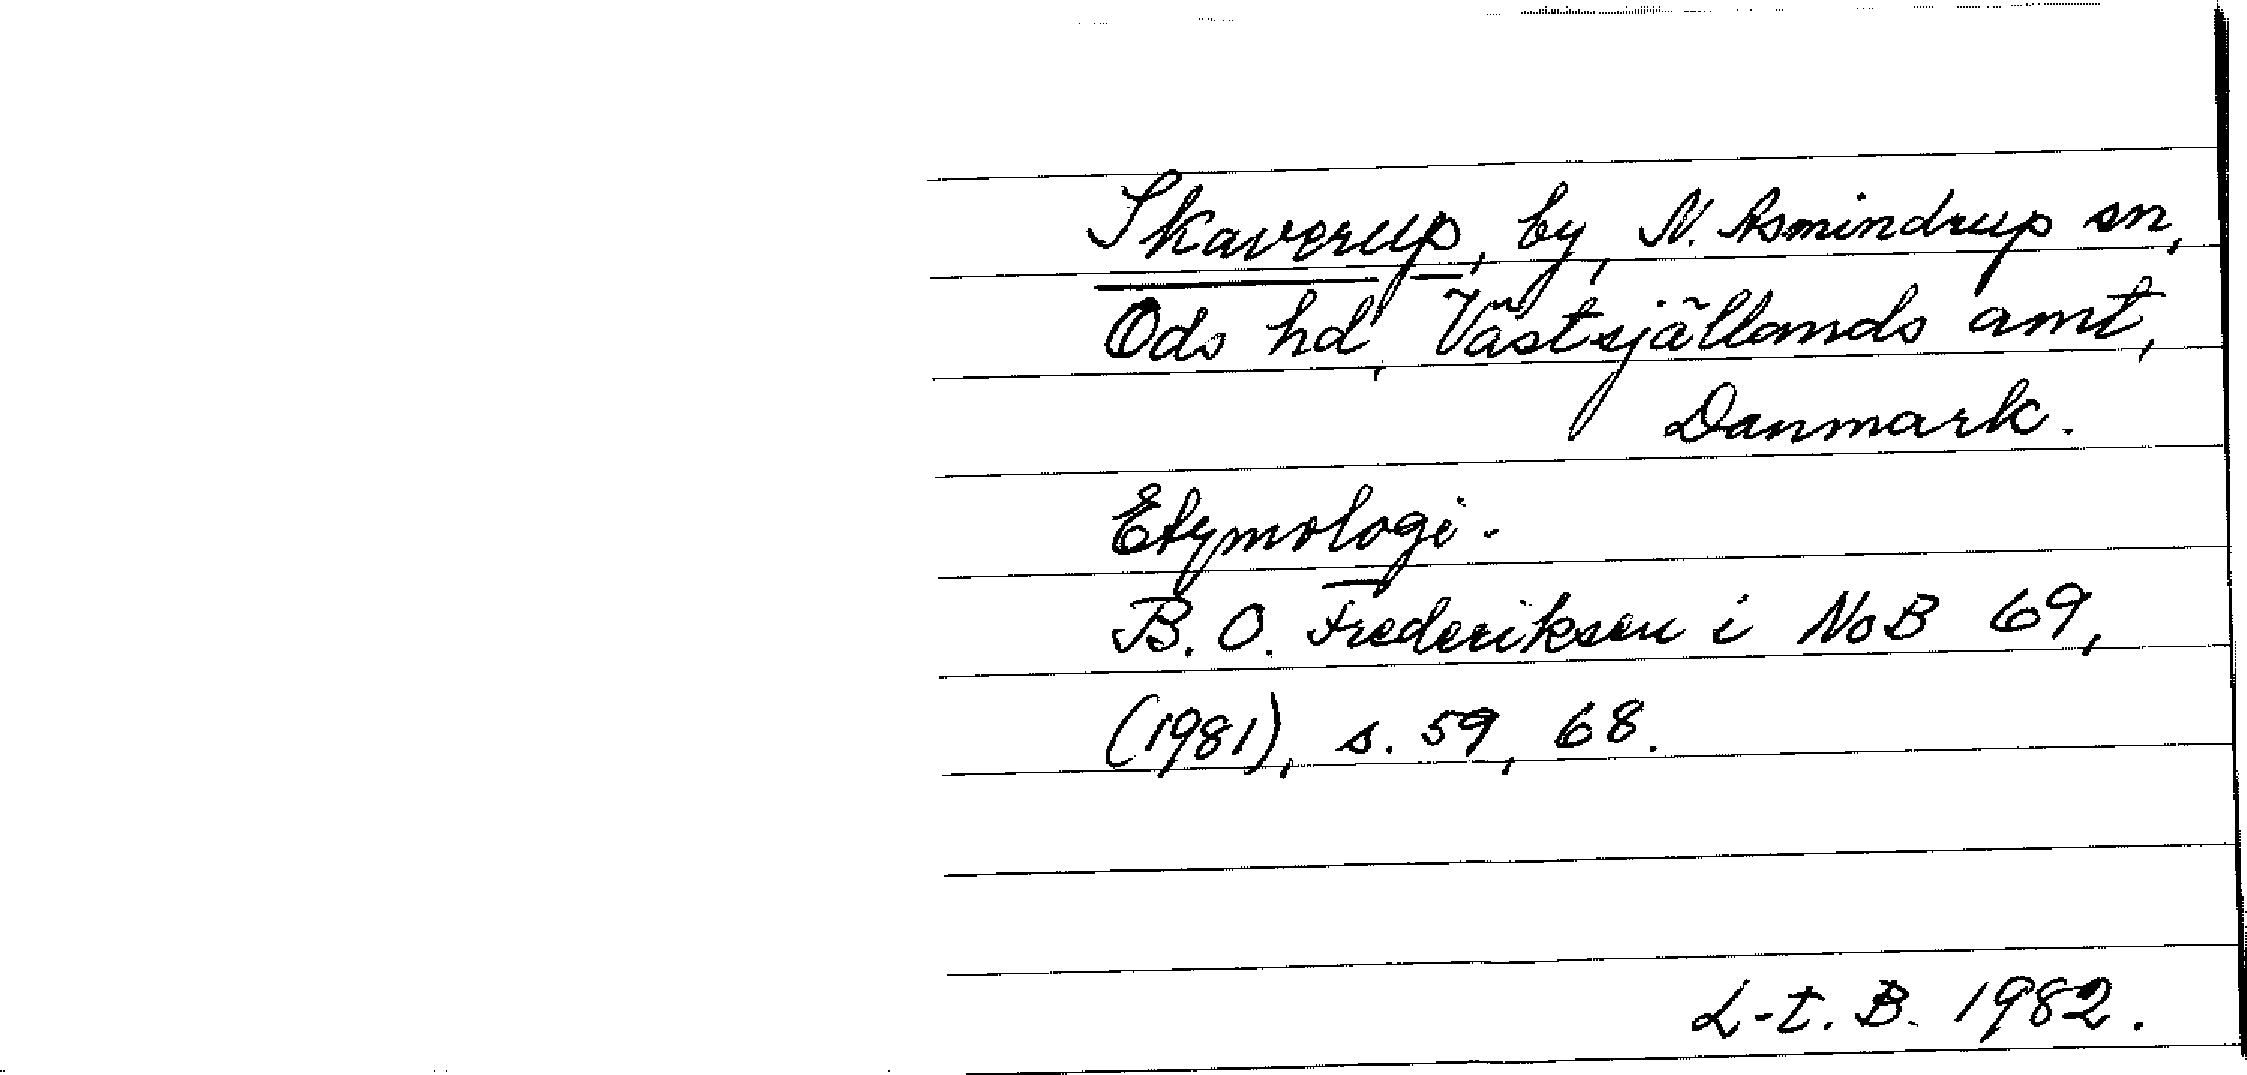 Skaverup, by, N. Asmindrup sn,
Ods hd, Västsjällands amt,
Danmark.
Etymologi.
B. O. Frederiksen i NoB 69,
(1981), s. 59, 68.
L-t. B. 1982.